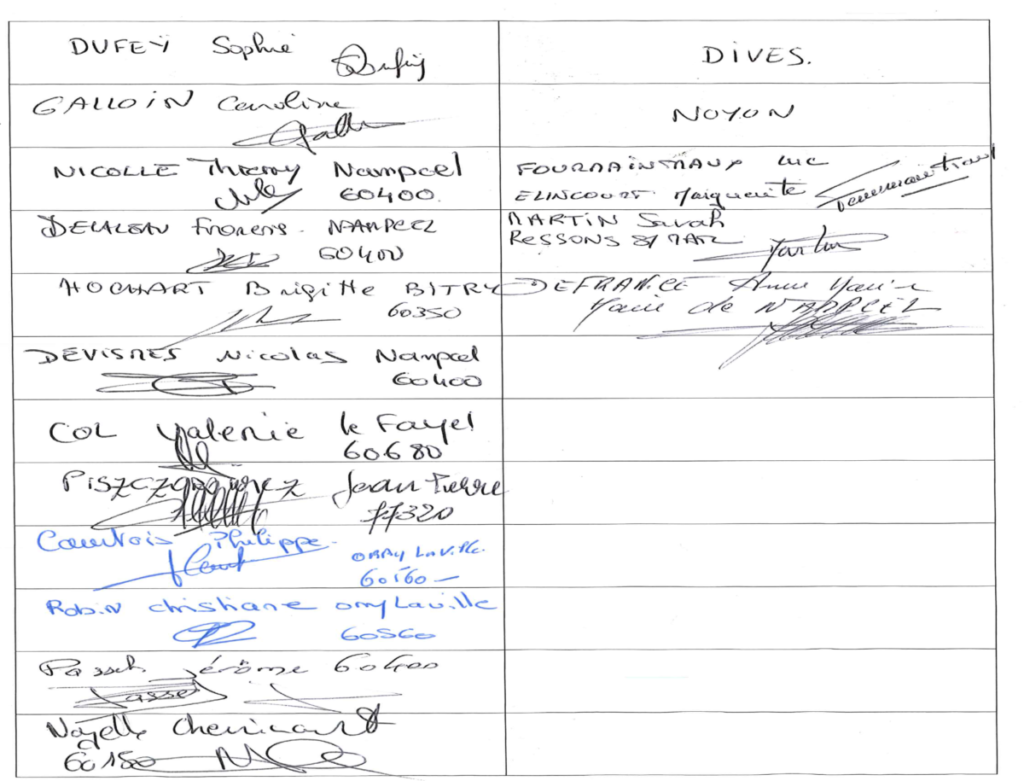 DUFEŸ Sophie
DIVES.
GALLOIN Caroline
NOYON
NICOLLE Thierry Nampcel
60400
FOURRAINTRAUX Luc
ELINCOURT Marguerite
DELALEAU Florens. NAMPCEL
60400
MARTIN Sarah
RESSONS S/ MATZ
HOCHART Brigitte BITRY
60350
DEFRANCE Anne Marie
Maire de NAMPCEL
DEVISMES Nicolas Nampcel
60400
COL Valerie le Fayel
60680
Jean Pierre
77320
Courtois Philippe.
ORRY LaVille.
60560
Robin christiane orry Laville
60560
Jérôme 60400
60150